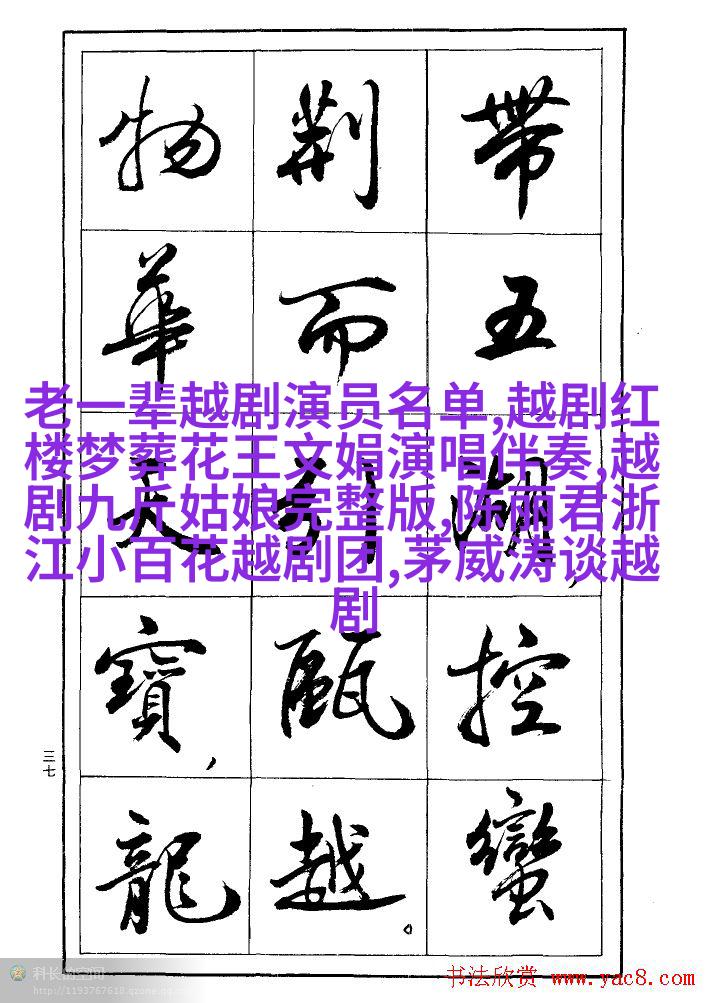 帶五湖,控蠻
荆而引甌越。
物華天寶,龍
老一辈越剧演员名单,越剧红
楼梦葬花王文娟演唱伴奏,越
剧九斤姑娘完整版,陈丽君浙
江小百花越剧团,茅威涛谈越
剧
三七
科长的空间
书法欣赏 www.yac8.com